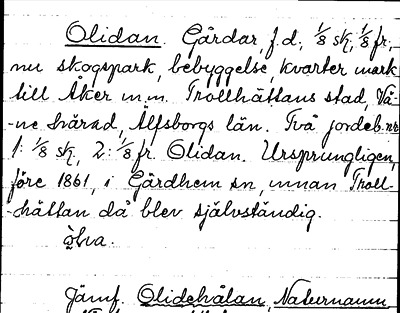 Olidan. Gårdar, f.d., 1/8 sk, 1/8 fr.,
nu skogspark, bebyggelse, kvarter mark
till Åker m.m. Trollhättans stad, Vä-
-ne härad, Älfsborgs län. Två jordeb.nr
1: 1/8 sk, 2: 1/8 fr. Olidan. Ursprungligen,
före 1861, i Gärdhem sn, innan Troll-
-hättan då blev självständig.
Jämf. Olidehålan, Naturnamn